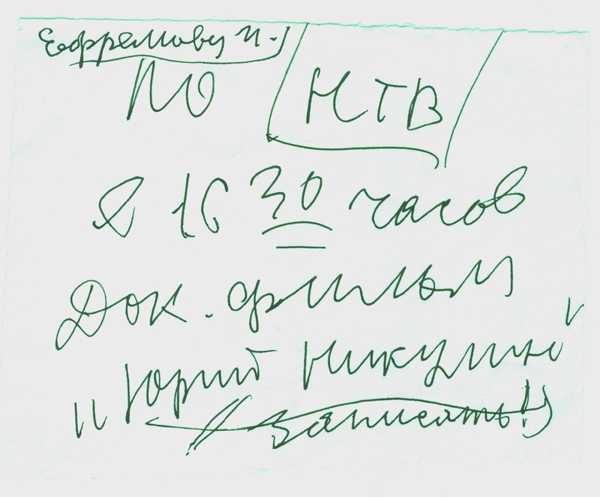 Ефремову И.
ПО НТВ
в 16 30 часов
Док. фильм
"Юрий Никулин"
(Записать!)